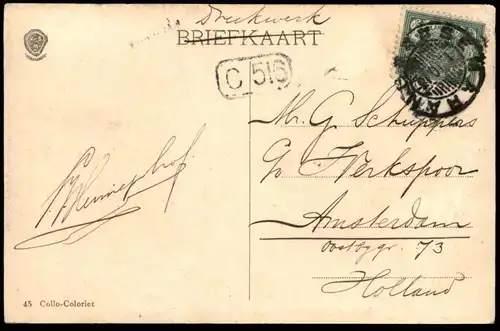 Drukwerk
BRIEFKAART
C 516
Mr. G Schuppers
p/o Werkspoor
Amsterdam
Oostbgr. 73
Holland
45 Collo-Coloriet